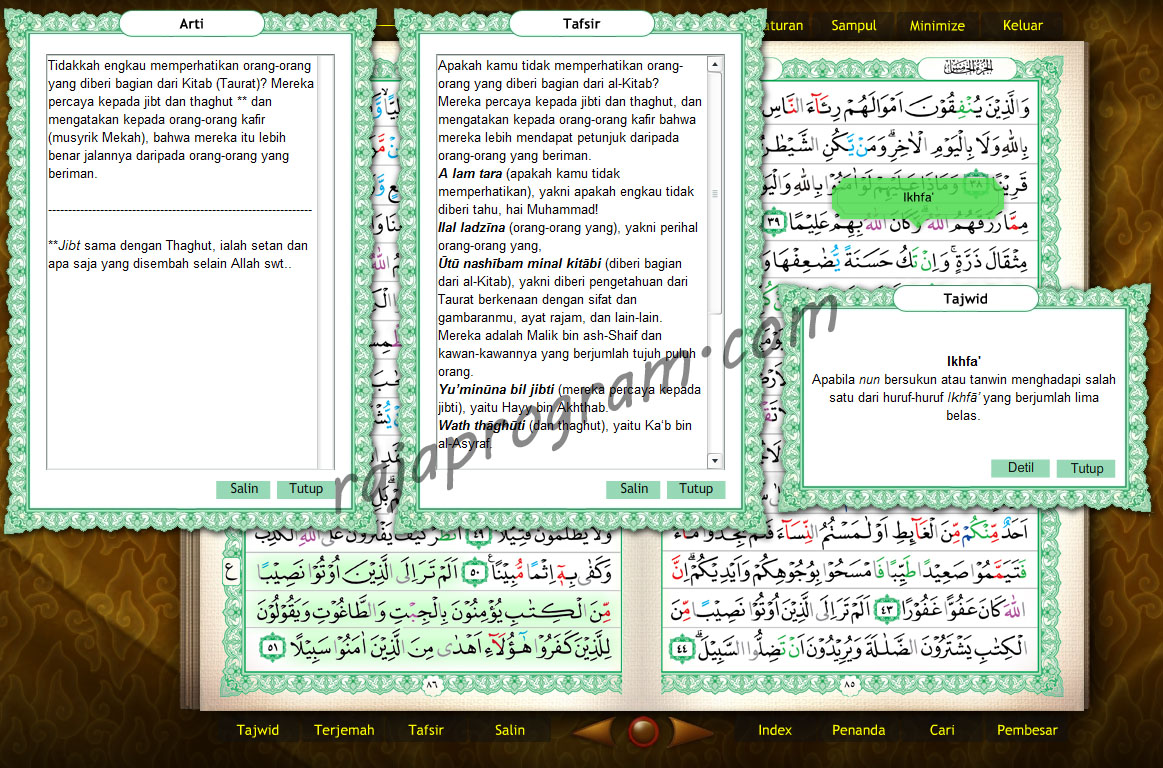 Arti
Tidakkah engkau memperhatikan orang-orang
yang diberi bagian dari Kitab (Taurat)? Mereka
percaya kepada jibt dan thaghut ** dan
mengatakan kepada orang-orang kafir
(musyrik Mekah), bahwa mereka itu lebih
benar jalannya daripada orang-orang yang
beriman.
**Jibt sama dengan Thaghut, ialah setan dan
apa saja yang disembah selain Allah swt..
Salin
Tutup
Tafsir
Apakah kamu tidak memperhatikan orang-
orang yang diberi bagian dari al-Kitab?
Mereka percaya kepada jibti dan thaghut, dan
mengatakan kepada orang-orang kafir bahwa
mereka lebih mendapat petunjuk daripada
orang-orang yang beriman.
A lam tara (apakah kamu tidak
memperhatikan), yakni apakah engkau tidak
diberi tahu, hai Muhammad!
Ilal ladzīna (orang-orang yang), yakni perihal
orang-orang yang,
Ūtū nashībam minal kitābi (diberi bagian
dari al-Kitab), yakni diberi pengetahuan dari
Taurat berkenaan dengan sifat dan
gambaranmu, ayat rajam, dan lain-lain.
Mereka adalah Malik bin ash-Shaif dan
kawan-kawannya yang berjumlah tujuh puluh
orang.
Yu'minūna bil jibti (mereka percaya kepada
jibti), yaitu Hayy bin Akhthab.
Wath thāghūti (dan thaghut), yaitu Ka'b bin
al-Asyraf.
Salin
Tutup
turan
Sampul
Minimize
Keluar
وَالَّذِيْنَ يُنْفِقُوْنَ اَمْوَالَهُمْ رِئَاۤءَ النَّاسِ
بِاللّٰهِ وَلَا بِالْيَوْمِ الْاٰخِرِۗ وَمَنْ يَّكُنِ الشَّيْطٰ
قَرِيْنًا ٣٨ وَمَاذَا عَلَيْهِمْ لَوْ اٰمَنُوْا بِاللّٰهِ وَالْيَوْ
Ikhfa'
مِمَّا رَزَقَهُمُ اللّٰهُ ۗوَكَانَ اللّٰهُ بِهِمْ عَلِيْمًا ٣٩
مِثْقَالَ ذَرَّةٍ ۚوَاِنْ تَكُ حَسَنَةً يُّضٰعِفْهَا وَ
Tajwid
Ikhfa'
Apabila nun bersukun atau tanwin menghadapi salah
satu dari huruf-huruf Ikhfā' yang berjumlah lima
belas.
Detil
Tutup
rajaprogram.com
اَحَدٌ مِّنْكُمْ مِّنَ الْغَاۤىِٕطِ اَوْ لٰمَسْتُمُ النِّسَاۤءَ فَلَمْ تَجِدُوْا مَاۤءً
فَتَيَمَّمُوْا صَعِيْدًا طَيِّبًا فَامْسَحُوْا بِوُجُوْهِكُمْ وَاَيْدِيْكُمْ ۗ اِنَّ
اللّٰهَ كَانَ عَفُوًّا غَفُوْرًا ٤٣ اَلَمْ تَرَ اِلَى الَّذِيْنَ اُوْتُوْا نَصِيْبًا مِّنَ
الْكِتٰبِ يَشْتَرُوْنَ الضَّلٰلَةَ وَيُرِيْدُوْنَ اَنْ تَضِلُّوا السَّبِيْلَۗ ٤٤
٨٥
وَلَا يُظْلَمُوْنَ فَتِيْلًا ٤٩ اُنْظُرْ كَيْفَ يَفْتَرُوْنَ عَلَى اللّٰهِ الْكَذِبَ
وَكَفٰى بِهٖٓ اِثْمًا مُّبِيْنًا ٥٠ اَلَمْ تَرَ اِلَى الَّذِيْنَ اُوْتُوْا نَصِيْبًا
مِّنَ الْكِتٰبِ يُؤْمِنُوْنَ بِالْجِبْتِ وَالطَّاغُوْتِ وَيَقُوْلُوْنَ
لِلَّذِيْنَ كَفَرُوْا هٰٓؤُلَاۤءِ اَهْدٰى مِنَ الَّذِيْنَ اٰمَنُوْا سَبِيْلًا ٥١
ع
٨٦
Tajwid
Terjemah
Tafsir
Salin
Index
Penanda
Cari
Pembesar